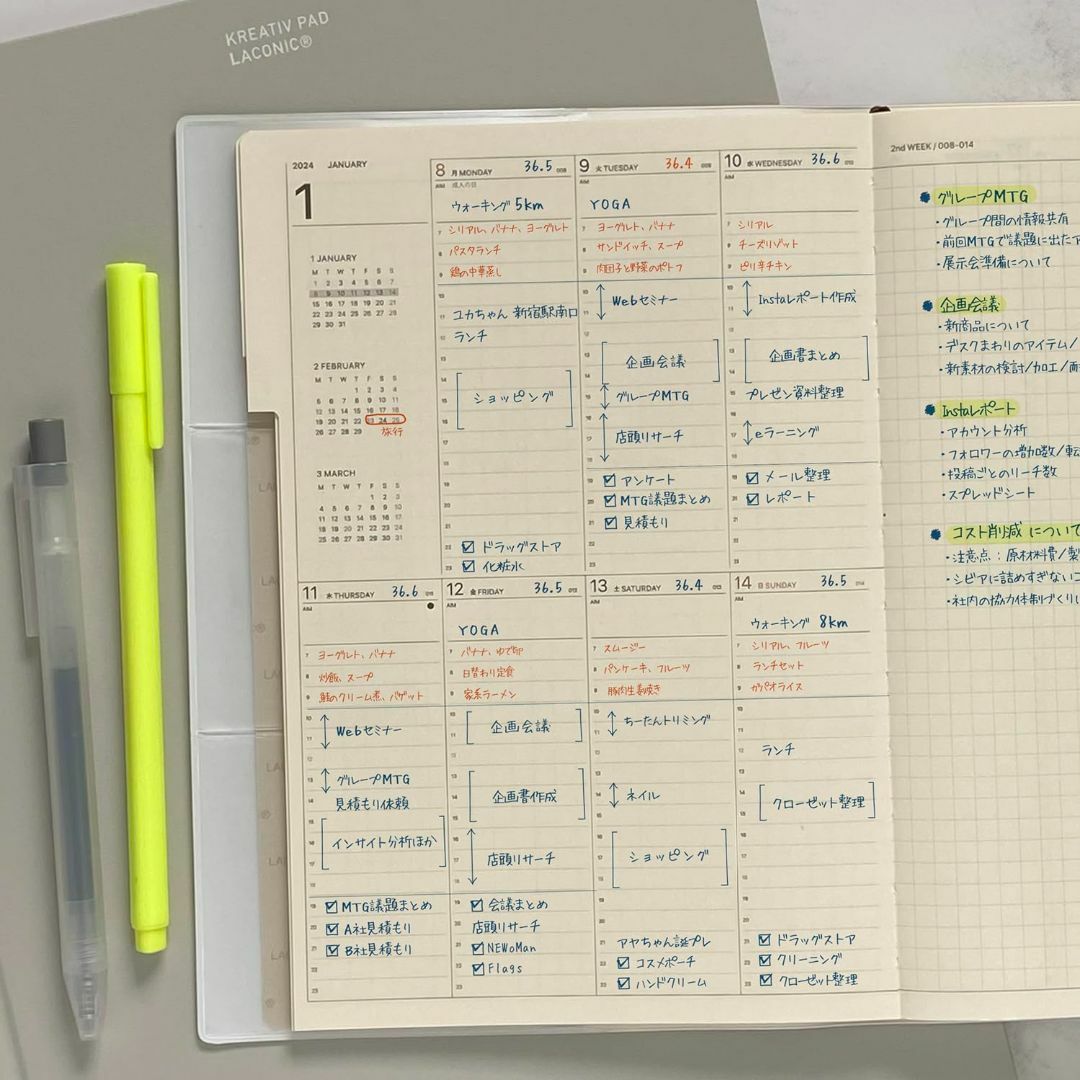 KREATIV PAD
LACONIC®
2024 JANUARY
1
1 JANUARY
M T W T F S S
1 2 3 4 5 6 7
8 9 10 11 12 13 14
15 16 17 18 19 20 21
22 23 24 25 26 27 28
29 30 31
2 FEBRUARY
M T W T F S S
1 2 3 4
5 6 7 8 9 10 11
12 13 14 15 16 17 18
19 20 21 22 23 24 25
26 27 28 29
旅行
3 MARCH
M T W T F S S
1 2 3
4 5 6 7 8 9 10
11 12 13 14 15 16 17
18 19 20 21 22 23 24
25 26 27 28 29 30 31
8 月 MONDAY 36.5 008
AIM 成人の日
ウォーキング 5km
7 シリアル、バナナ、ヨーグルト
8 パスタランチ
9 鶏の中華蒸し
10
11 ユカちゃん 新宿駅南口
12 ランチ
13
14
15 ショッピング
16
17
18
19
20
21
22 ドラッグストア
23 化粧水
9 火 TUESDAY 36.4 009
AIM
YOGA
7 ヨーグルト、バナナ
8 サンドイッチ、スープ
9 肉団子と野菜のポトフ
10
11 Webセミナー
12
13 企画会議
14
15 グループMTG
16
17 店頭リサーチ
18
19 アンケート
20 MTG議題まとめ
21 見積もり
22
23
10 水 WEDNESDAY 36.6 010
AIM
7 シリアル
8 チーズリゾット
9 ピリ辛チキン
10
11 Instaレポート作成
12
13 企画書まとめ
14
15 プレゼン資料整理
16
17 eラーニング
18
19 メール整理
20 レポート
21
22
23
11 木 THURSDAY 36.6 011
AIM
7 ヨーグルト、バナナ
8 炒飯、スープ
9 鮭のクリーム煮、バゲット
10
11 Webセミナー
12
13 グループMTG
14 見積もり依頼
15
16 インサイト分析ほか
17
18
19 MTG議題まとめ
20 A社見積もり
21 B社見積もり
22
23
12 金 FRIDAY 36.5 012
AIM
YOGA
7 バナナ、ゆで卵
8 日替わり定食
9 家系ラーメン
10
11 企画会議
12
13
14 企画書作成
15
16
17 店頭リサーチ
18
19 会議まとめ
20 店頭リサーチ
21 NEWoMan
22 Flags
23
13 土 SATURDAY 36.4 013
AIM
7 スムージー
8 パンケーキ、フルーツ
9 豚肉生姜焼き
10
11 ちーたんトリミング
12
13
14 ネイル
15
16
17 ショッピング
18
19
20
21 アヤちゃん誕プレ
22 コスメポーチ
23 ハンドクリーム
14 日 SUNDAY 36.5 014
AIM
ウォーキング 8km
7 シリアル、フルーツ
8 ランチセット
9 ガパオライス
10
11
12 ランチ
13
14 クローゼット整理
15
16
17
18
19
20
21 ドラッグストア
22 クリーニング
23 クローゼット整理
2nd WEEK / 008-014
グループMTG
・グループ間の情報共有
・前回MTGで議題に出たア
・展示会準備について
企画会議
・新商品について
・デスクまわりのアイテム/
・新素材の検討/加工/
Instaレポート
・アカウント分析
・フォロワーの増加数/転
・投稿ごとのリーチ数
・スプレッドシート
コスト削減について
・注意点：原材料費/製
・シビアに詰めすぎない
・社内の協力体制づくり